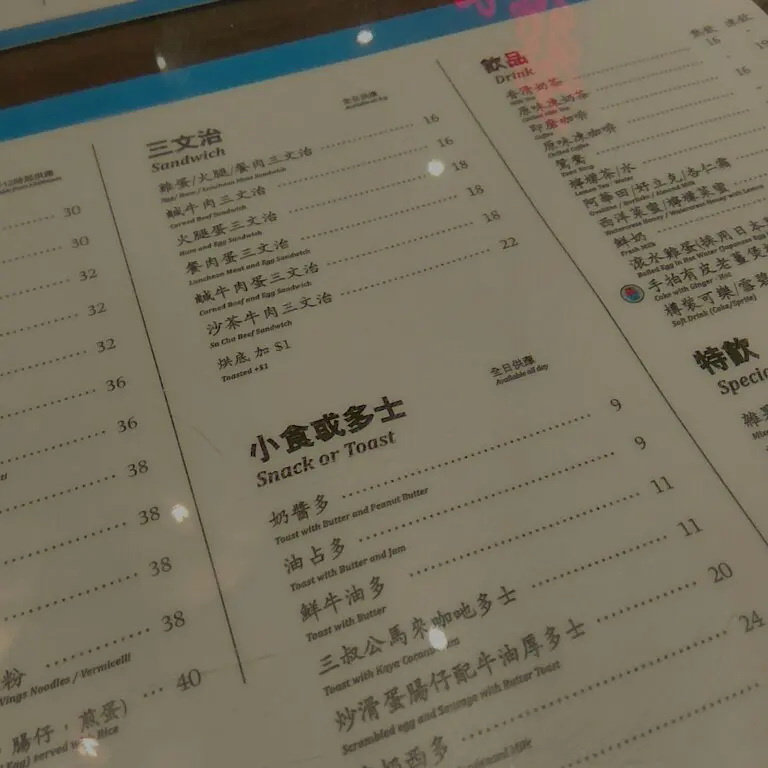 30
30
32
32
32
36
36
38
38
38
38
粉
Wings Noodles / Vermicelli
腸仔,煎蛋) 40
Egg) served w Rice
三文治
Sandwich
全日供應
Available all day
雞蛋/火腿/餐肉三文治 16
Egg / Ham / Luncheon Meat Sandwich
鹹牛肉三文治 16
Corned Beef Sandwich
火腿蛋三文治 18
Ham and Egg Sandwich
餐肉蛋三文治 18
Luncheon Meat and Egg Sandwich
鹹牛肉蛋三文治 18
Corned Beef and Egg Sandwich
沙茶牛肉三文治 22
Sa Cha Beef Sandwich
烘底 加 $1
Toasted +$1
小食或多士
Snack or Toast
全日供應
Available all day
奶醬多 9
Toast with Butter and Peanut Butter
油占多 9
Toast with Butter and Jam
鮮牛油多 11
Toast with Butter
三叔公馬來咖吔多士 11
Toast with Kaya Coconut
炒滑蛋腸仔配牛油厚多士 20
Scrambled egg and Sausage with Butter Toast
奶西多 24
飲品
Drink
熱飲 凍飲
香滑奶茶 16
Milk Tea
原味凍奶茶
Chilled Milk Tea
即磨咖啡 16
Coffee
原味凍咖啡
Chilled Coffee
鴛鴦
檸檬茶/水
Lemon Tea / Water
阿華田/好立克/杏仁霜
Ovaltine / Horlicks / Almond Milk
西洋菜蜜/檸檬菜蜜
Watercress Honey / Watercress Honey with Lemon
鮮奶
Fresh Milk
滾水雞蛋(採用日本
Boiled Egg in Hot Water (Japanese Egg
手拍有皮老薑煲
Coke with Ginger - Hot
樽裝可樂/雪碧
Soft Drink (Coke/Sprite)
特飲
Specia
雜果